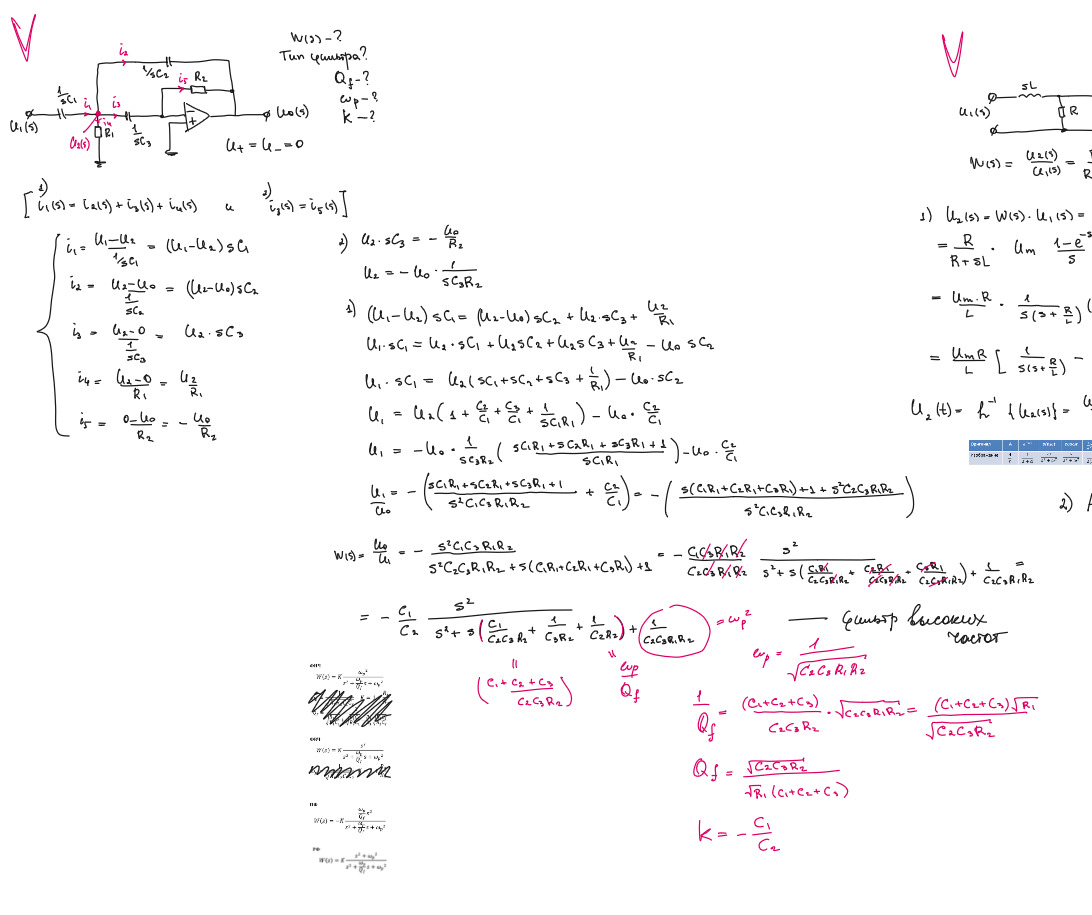 W(s) – ?
Тип фильтра?
Qf – ?
ωp – ?
K – ?
i₂
1/sC₂
i₅ R₂
1/sC₁
i₁
i₃
U₁(s)
U₀(s)
i₄
R₁
U₂(s)
1/sC₃
U₊ = U₋ = 0
1) 2)
[i₁(s) = i₂(s) + i₃(s) + i₄(s) и i₃(s) = i₅(s)]
i₁ = (U₁ – U₂)/(1/sC₁) = (U₁ – U₂) sC₁
i₂ = (U₂ – U₀)/(1/sC₂) = (U₂ – U₀) sC₂
i₃ = (U₂ – 0)/(1/sC₃) = U₂ · sC₃
i₄ = (U₂ – 0)/R₁ = U₂/R₁
i₅ = (0 – U₀)/R₂ = – U₀/R₂
2) U₂ · sC₃ = – U₀/R₂
U₂ = – U₀ · 1/(sC₃R₂)
1) (U₁ – U₂) sC₁ = (U₂ – U₀) sC₂ + U₂ · sC₃ + U₂/R₁
U₁ · sC₁ = U₂ · sC₁ + U₂sC₂ + U₂sC₃ + U₂/R₁ – U₀ sC₂
U₁ · sC₁ = U₂(sC₁ + sC₂ + sC₃ + 1/R₁) – U₀ · sC₂
U₁ = U₂(1 + C₂/C₁ + C₃/C₁ + 1/(sC₁R₁)) – U₀ · C₂/C₁
U₁ = – U₀ · 1/(sC₃R₂) ((sC₁R₁ + sC₂R₁ + sC₃R₁ + 1)/(sC₁R₁)) – U₀ · C₂/C₁
U₁/U₀ = – ((sC₁R₁ + sC₂R₁ + sC₃R₁ + 1)/(s²C₁C₃R₁R₂) + C₂/C₁) = – ((s(C₁R₁ + C₂R₁ + C₃R₁) + 1 + s²C₂C₃R₁R₂)/(s²C₁C₃R₁R₂))
W(s) = U₀/U₁ = – (s²C₁C₃R₁R₂)/(s²C₂C₃R₁R₂ + s(C₁R₁ + C₂R₁ + C₃R₁) + 1) = – (C₁C₃R₁R₂)/(C₂C₃R₁R₂) s²/(s² + s(C₁R₁/(C₂C₃R₁R₂) + C₂R₁/(C₂C₃R₁R₂) + C₃R₁/(C₂C₃R₁R₂)) + 1/(C₂C₃R₁R₂)) =
= – C₁/C₂ s²/(s² + s(C₁/(C₂C₃R₂) + 1/(C₃R₂) + 1/(C₂R₂)) + 1/(C₂C₃R₁R₂)) = ωp² — фильтр высоких
частот
= ((C₁ + C₂ + C₃)/(C₂C₃R₂))
= ωp/Qf
ωp = 1/√(C₂C₃R₁R₂)
1/Qf = (C₁ + C₂ + C₃)/(C₂C₃R₂) · √(C₂C₃R₁R₂) = ((C₁ + C₂ + C₃)√R₁)/√(C₂C₃R₂)
Qf = √(C₂C₃R₂)/(√R₁ (C₁ + C₂ + C₃))
K = – C₁/C₂
W(s) = K ωp²/(s² + (ωp/Qf)s + ωp²)
W(s) = K s²/(s² + (ωp/Qf)s + ωp²)
W(s) = –K ((ωp/Qf)s)/(s² + (ωp/Qf)s + ωp²)
W(s) = K (s² + ωp²)/(s² + (ωp/Qf)s + ωp²)
sL
U₁(s)
R
W(s) = U₂(s)/U₁(s) =
1) U₂(s) = W(s) · U₁(s) =
= R/(R + sL) · Um
= (Um · R)/L · 1/(s(s + R/L))
= (UmR)/L [ 1/(s(s + R/L)) –
U₂(t) = {U₂(s)} =
2)